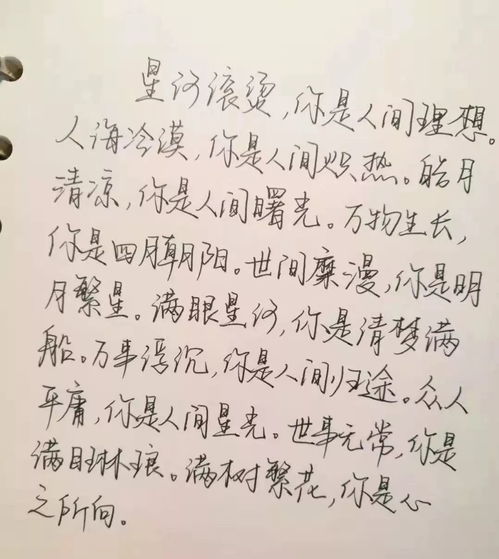 星河滚烫，你是人间理想。
人海冷漠，你是人间炽热。皓月
清凉，你是人间曙光。万物生长，
你是四月朝阳。世间糜漫，你是明
月繁星。满眼星河，你是清梦满
船。万事浮沉，你是人间归途。众人
平庸，你是人间星光。世事无常，你是
满目琳琅。满树繁花，你是心
之所向。